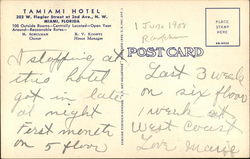 TAMIAMI HOTEL
202 W. Flagler Street at 2nd Ave., N. W.
MIAMI, FLORIDA
100 Outside Rooms—Centrally Located—Open Year
Around—Reasonable Rates—
Owner
Dinon Manager
1 June 1908
POST CARD
I stopping at
this hotel
got in late
at night
First month
on 5 floor
Last 3 weeks
on six floor
1 week at
West Coast
Love Marie